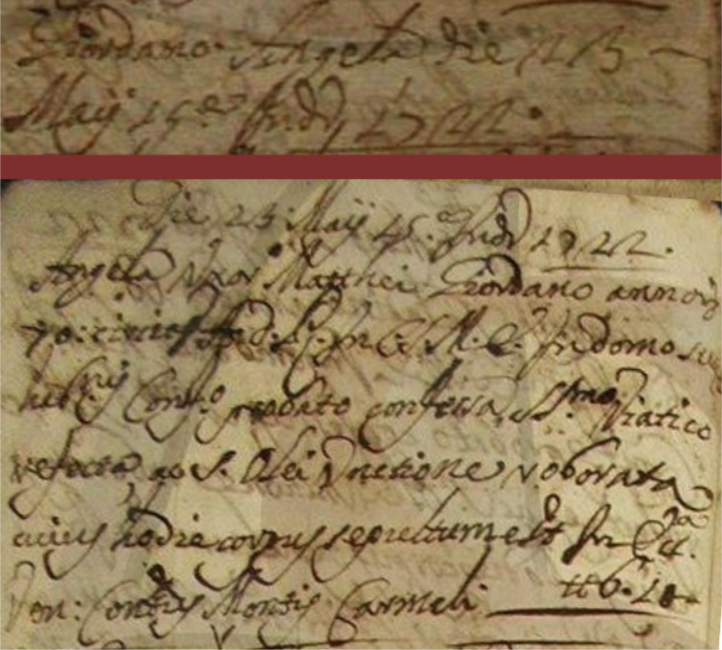 Giordano Angela die 23
Maij 15.e Ind. 1722.
Die 23 Maij 15.e Ind. 1722.
Angela Uxor Matthei Giordano annorũ
70: circiter Ind. S. In C. S. M. E. In domo suæ
huius confess.o probato confessa, SSmo Viatico
refecta, ac S. Olei Unctione roborata
cuius hodie corpus sepultum est In Ecc.a
Con: Montis Carmeli